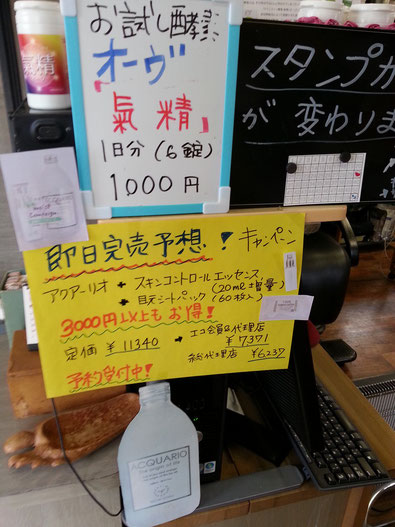 氣精
お試し酵素
オーヴ
「氣精」
1日分(6錠)
1000円
スタンプカ
が変わりま
即日完売予想!キャンペーン
アクアーリオ + スキンコントロールエッセンス
(20ml増量)
+ 目元シートパック(60枚入)
3000円以上もお得!
定価 ¥11340 → エコ会員&代理店
¥7371
予約受付中!
総代理店 ¥6237
ACQUARIO
The origin of life